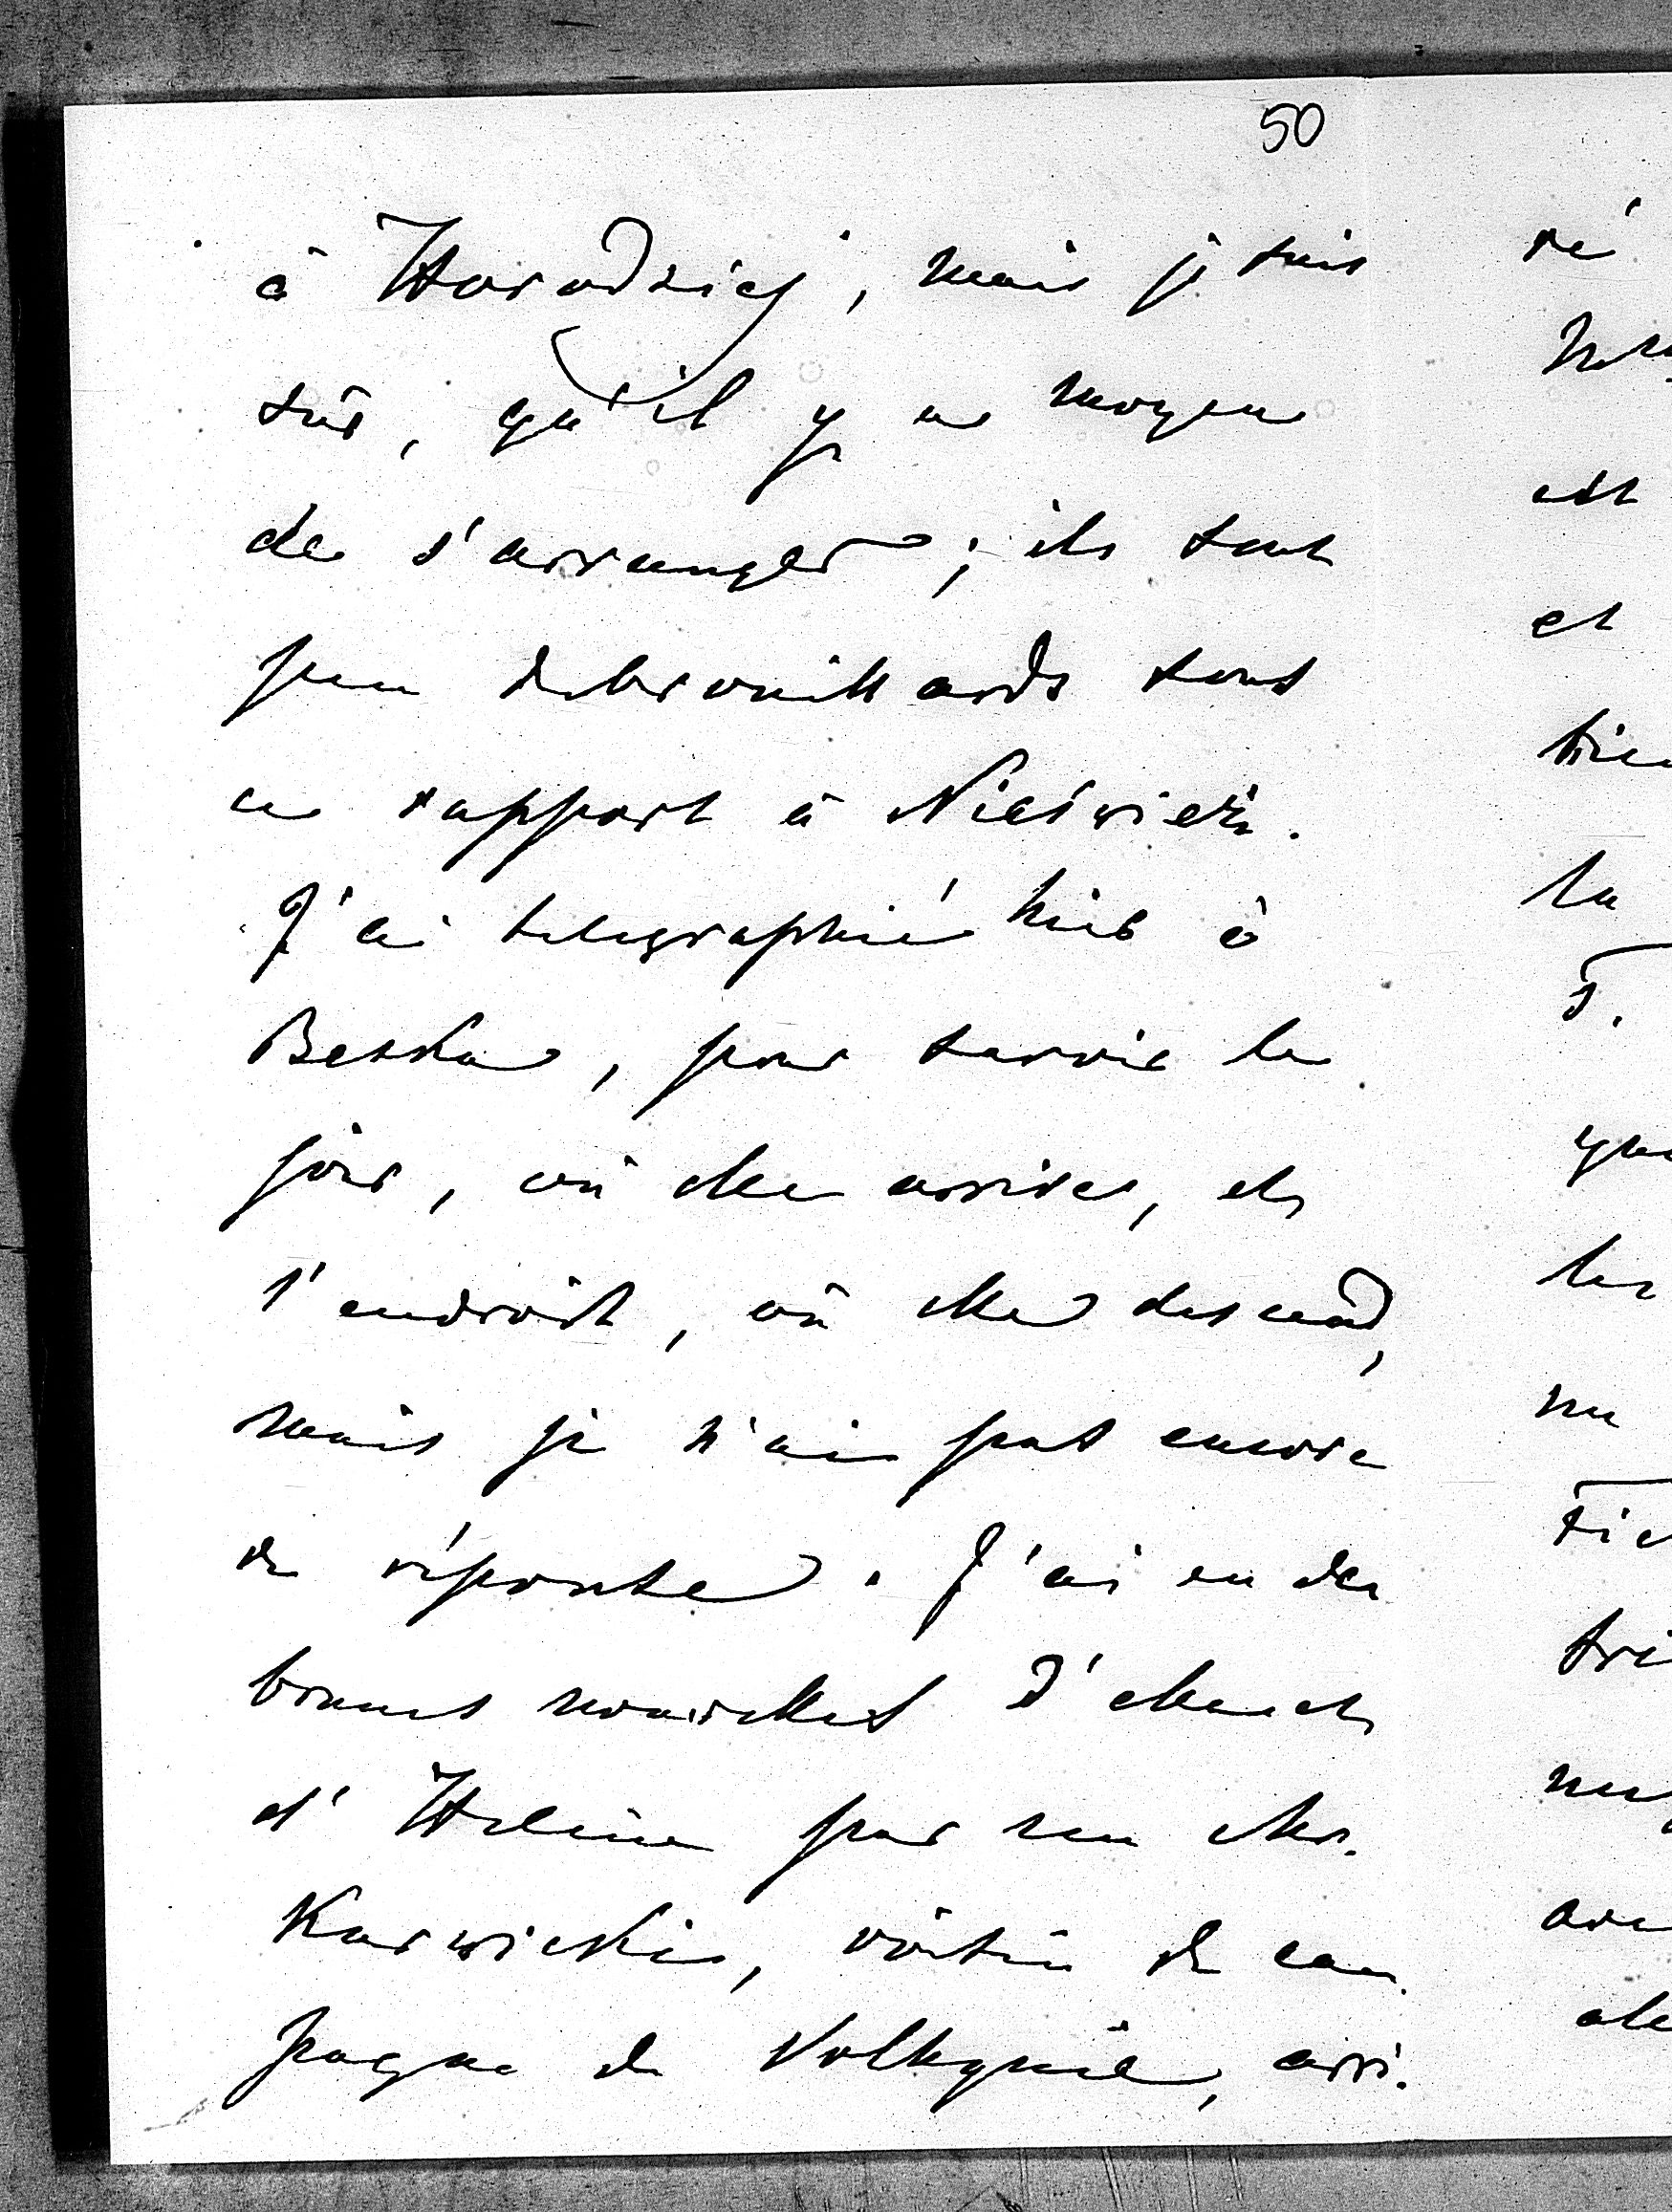 50
à Horodziej, mais je suis
sûr, qu'il y a moyen
de s'arranger; ils sont
peu debrouillards sous
ce rapport à Nieśwież.
J'ai telegraphié hier à
Betka, pour savoir le
jour, où elle arrive, et
l'endroit, où elle descend,
mais je n'ai pas encore
de réponse. J'ai eu des
bonnes nouvelles d'elle et
d'Helène par un Mr.
Karwicki, voisin de cam
pagne de Volhynie, arri.
ré
est
et
la
les